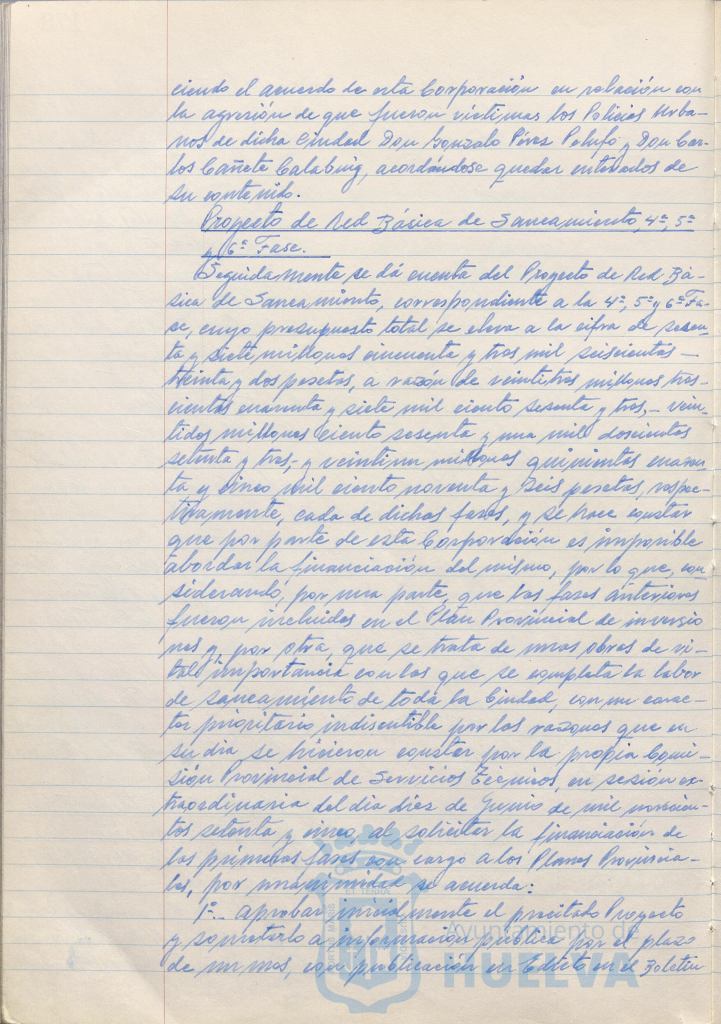 ciendo el acuerdo de esta Corporación en relación con
la agresión de que fueron víctimas los Policías Urba-
nos de dicha Ciudad Don Gonzalo Pérez Pelufo y Don Car-
los Cañete Calabuig, acordándose quedar enterados de
su contenido.
Proyecto de Red Básica de Saneamiento, 4ª, 5ª
y 6ª Fase.
Seguidamente se dá cuenta del Proyecto de Red Bá-
sica de Saneamiento, correspondiente a la 4ª, 5ª y 6ª Fa-
se, cuyo presupuesto total se eleva a la cifra de sesen-
ta y siete millones cincuenta y tres mil seiscientas
treinta y dos pesetas, a razón de veintitres millones tres-
cientas cuarenta y siete mil ciento sesenta y tres,- vein-
tidos millones ciento sesenta y una mil doscientas
setenta y tres,- y veintiun millones quinientas cuaren-
ta y cinco mil ciento noventa y seis pesetas, respec-
tivamente, cada de dichas fases, y se hace constar
que por parte de esta Corporación es imposible
abordar la financiación del mismo, por lo que, con-
siderando, por una parte, que las fases anteriores
fueron incluidas en el Plan Provincial de inversio
nes y, por otra, que se trata de unas obras de vi-
tal importancia con las que se completa la labor
de saneamiento de toda la Ciudad, con un carac-
ter prioritario indiscutible por las razones que en
su dia se hicieron constar por la propia Comi-
sión Provincial de Servicios Técnicos, en sesión ex-
traordinaria del dia diez de Junio de mil novecien-
tos setenta y cinco, al solicitar la financiación de
las primeras fases con cargo a los Planes Provincia-
les, por unanimidad se acuerda:
1º.- Aprobar inicialmente el precitado Proyecto
y someterlo a información pública por el plazo
de un mes, con publicación en Edicto en el Boletín
Ayuntamiento de
HUELVA